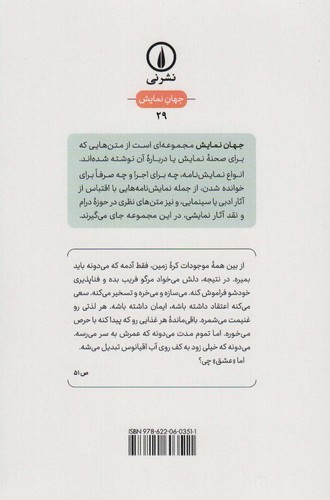 نشرنی
جهان نمایش
۲۹
جهان نمایش مجموعه‌ای است از متن‌هایی که
برای صحنهٔ نمایش یا دربارهٔ آن نوشته شده‌اند.
انواع نمایش‌نامه، چه برای اجرا و چه صرفاً برای
خوانده شدن، از جمله نمایش‌نامه‌هایی با اقتباس از
آثار ادبی یا سینمایی، و نیز متن‌های نظری در حوزهٔ درام
و نقد آثار نمایشی، در این مجموعه جای می‌گیرند.
از بین همهٔ موجودات کرهٔ زمین، فقط آدمه که می‌دونه باید
بمیره. در نتیجه، دلش می‌خواد مرگو فریب بده و فناپذیری
خودشو فراموش کنه. می‌سازه و می‌خره و تسخیر می‌کنه. سعی
می‌کنه اعتقاد داشته باشه، ایمان داشته باشه. هر لذتی رو
غنیمت می‌شمره. باقی‌ماندهٔ هر غذایی رو که پیدا کنه با حرص
می‌خوره. اما تموم مدت می‌دونه که عمرش به سر می‌رسه.
می‌دونه که خیلی زود به کف روی آب اقیانوس تبدیل می‌شه.
اما «عشق» چی؟
ص ۵۱
ISBN 978-622-06-0351-1